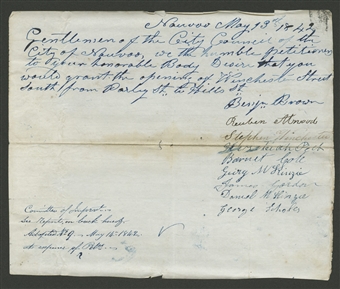 Nauvoo May 13th 1842
Gentlemen of the City Council of the
City of Nauvoo, we the humble Petitioners
to your honorable Body Desire that you
would grant the opening of Winchester Street
South from Parley St. to Hills St.
Benjn Brown
Reuben Atwood
Stephen Winchester
Barnet Cole
Daniel McKinzie
George
Committee of
See Report on back hereof
Adopted May 14th 1842
at expense of